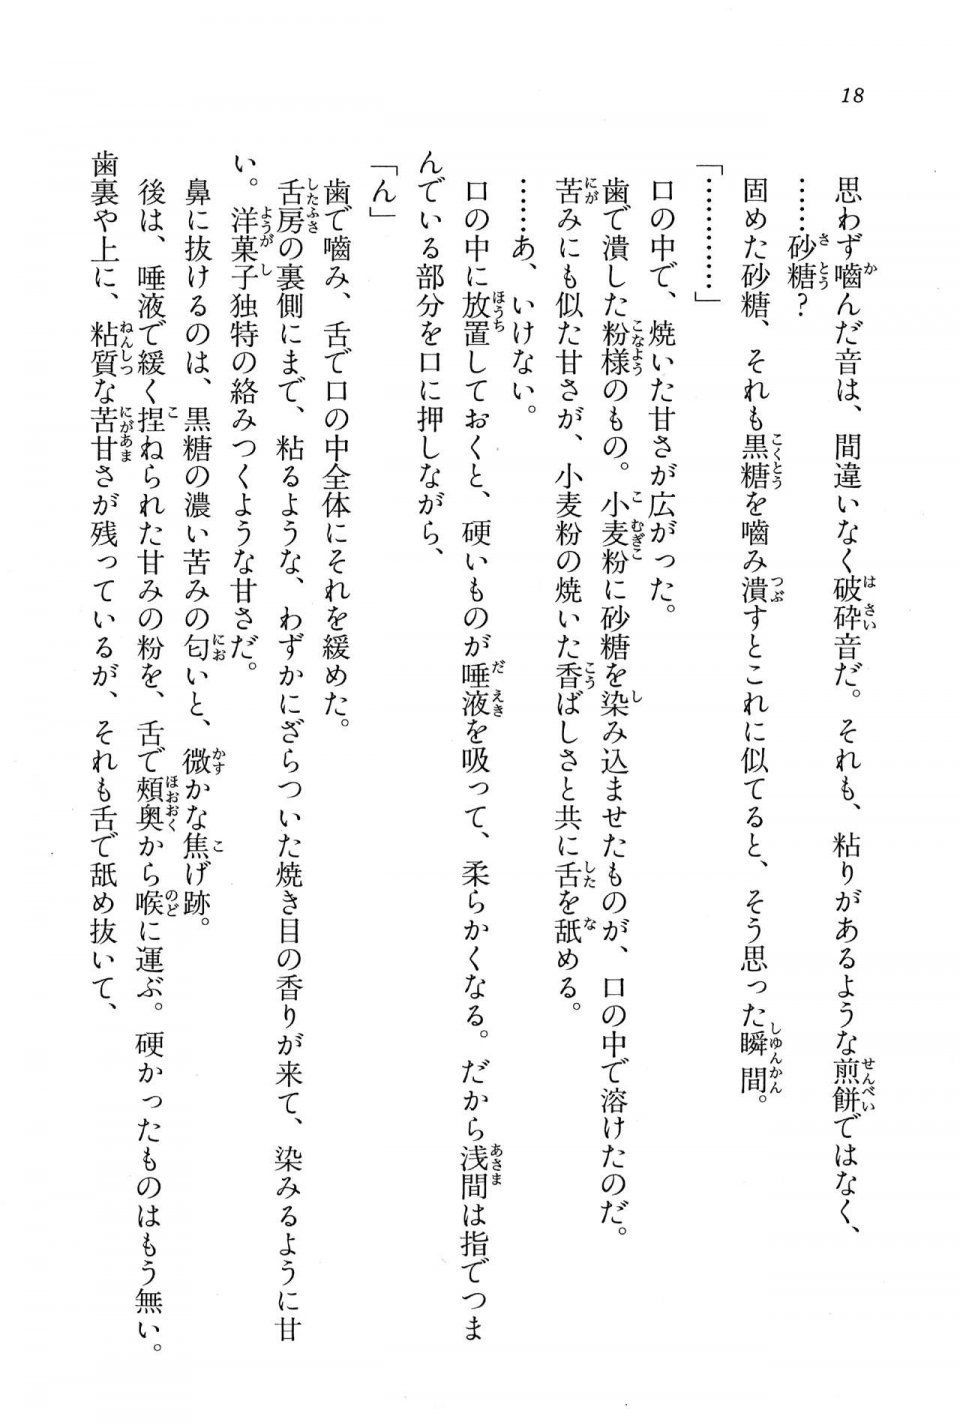 18
思わず嚙んだ音は、間違いなく破砕音だ。それも、粘りがあるような煎餅ではなく、
……砂糖？
固めた砂糖、それも黒糖を嚙み潰すとこれに似てると、そう思った瞬間。
「…………」
口の中で、焼いた甘さが広がった。
歯で潰した粉様のもの。小麦粉に砂糖を染み込ませたものが、口の中で溶けたのだ。
苦みにも似た甘さが、小麦粉の焼いた香ばしさと共に舌を舐める。
……あ、いけない。
口の中に放置しておくと、硬いものが唾液を吸って、柔らかくなる。だから浅間は指でつま
んでいる部分を口に押しながら、
「ん」
歯で嚙み、舌で口の中全体にそれを緩めた。
舌房の裏側にまで、粘るような、わずかにざらついた焼き目の香りが来て、染みるように甘
い。洋菓子独特の絡みつくような甘さだ。
鼻に抜けるのは、黒糖の濃い苦みの匂いと、微かな焦げ跡。
後は、唾液で緩く捏ねられた甘みの粉を、舌で頰奥から喉に運ぶ。硬かったものはもう無い。
歯裏や上に、粘質な苦甘さが残っているが、それも舌で舐め抜いて、